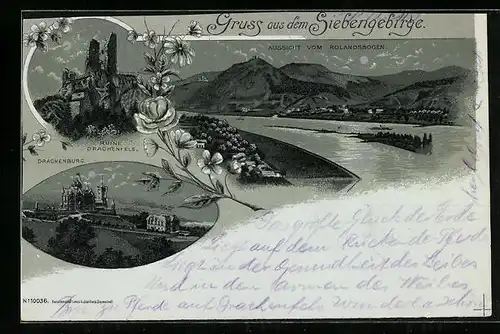 Gruss aus dem Siebengebirge.
AUSSICHT VOM ROLANDSBOGEN.
RUINE
DRACHENFELS.
DRACHENBURG
Das größte Glück der Erde
Liegt auf dem Rücken der Pferde
Liegt in der Gesundheit des Leibes
Und in den Armen des Weibes
zu Pferde auf Drachenfels wunderschön
Nº 10036.